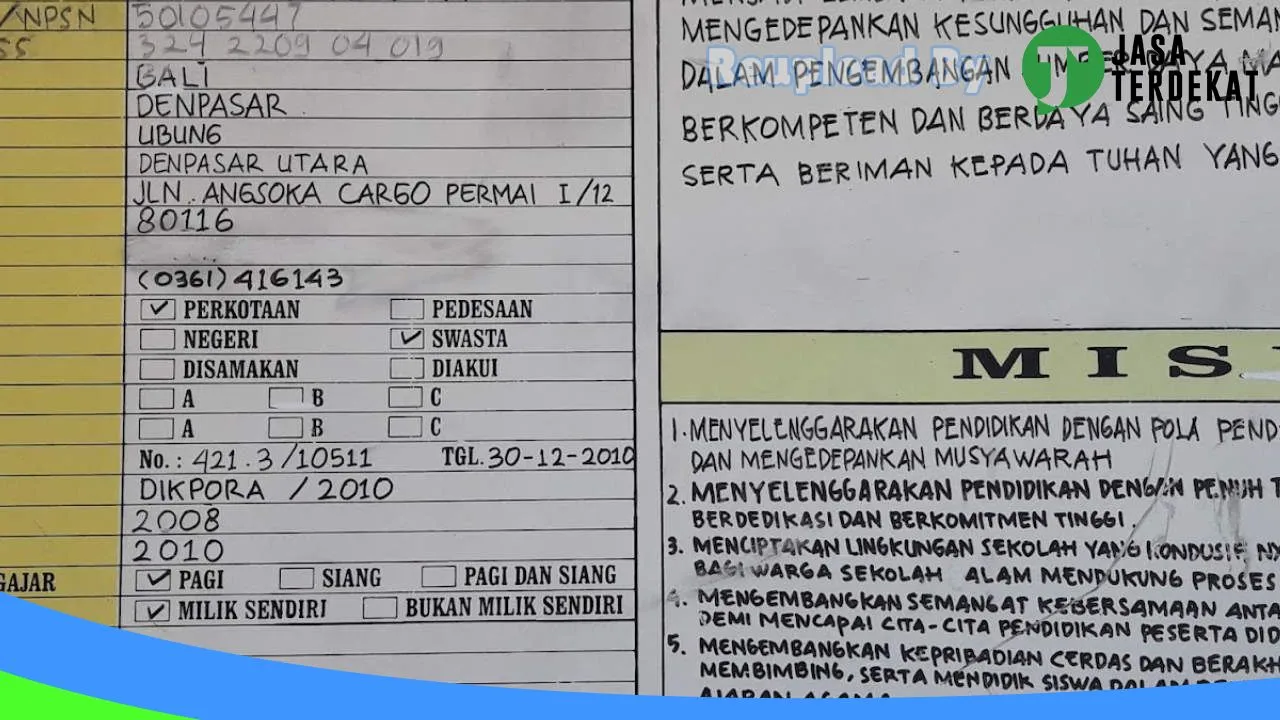 /NPSN 50105447
SS 324 2209 04 019
BALI
DENPASAR
UBUNG
DENPASAR UTARA
JLN. ANGSOKA CARGO PERMAI I/12
80116
(0361) 416143
PERKOTAAN PEDESAAN
NEGERI SWASTA
DISAMAKAN DIAKUI
A B C
A B C
No. : 421.3/10511 TGL. 30-12-2010
DIKPORA / 2010
2008
2010
GAJAR PAGI SIANG PAGI DAN SIANG
MILIK SENDIRI BUKAN MILIK SENDIRI
MENGEDEPANKAN KESUNGGUHAN DAN SEMAN
DALAM PENGEMBANGAN SUMBER DAYA MA
BERKOMPETEN DAN BERDAYA SAING TING
SERTA BERIMAN KEPADA TUHAN YANG
Reupload By
JASA
TERDEKAT
MIS
1. MENYELENGGARAKAN PENDIDIKAN DENGAN POLA PEND
DAN MENGEDEPANKAN MUSYAWARAH
2. MENYELENGGARAKAN PENDIDIKAN DENGAN PENUH T
BERDEDIKASI DAN BERKOMITMEN TINGGI.
3. MENCIPTAKAN LINGKUNGAN SEKOLAH YANG KONDUSIF NY
BAGI WARGA SEKOLAH ALAM MENDUKUNG PROSES
4. MENGEMBANGKAN SEMANGAT KEBERSAMAAN ANTA
DEMI MENCAPAI CITA-CITA PENDIDIKAN PESERTA DID
5. MENGEMBANGKAN KEPRIBADIAN CERDAS DAN BERAKH
MEMBIMBING, SERTA MENDIDIK SISWA DALAM
AJARAN AGAMA